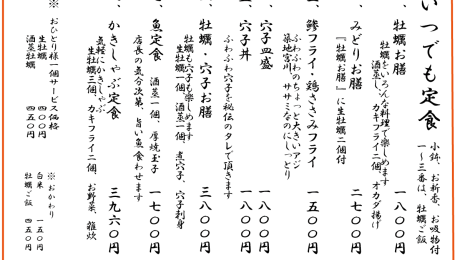 いつでも定食
小鉢、お新香、お吸物付
一〜三番は、牡蠣ご飯
、牡蠣お膳 一八〇〇円
牡蠣をいろんな料理で楽しめます
酒蒸し、カキフライ二個、オカダ揚げ
、みどりお膳 二七〇〇円
『牡蠣お膳』に生牡蠣二個付
、鯵フライ・鶏ささみフライ 一五〇〇円
ふわふわのちょっと大きいアジ
築地宮川、ササミなのにしっとり
、穴子皿盛 一八〇〇円
、穴子丼 一八〇〇円
ふわふわ穴子を秘伝のタレで頂きます
、牡蠣・穴子お膳 三八〇〇円
牡蠣も穴子も楽しめます
生牡蠣一個、酒蒸一個、煮穴子、穴子刺身
、魚定食 酒蒸一個、厚焼玉子 一七〇〇円
店長の気分次第、旨い魚食わせます
、かきしゃぶ定食 三九六〇円
気軽にかきしゃぶ
生牡蠣三個、カキフライ二個、お野菜、雑炊
※ おひとり様一個サービス価格
生牡蠣 四〇〇円
酒蒸牡蠣 四五〇円
※ おかわり
白米 一五〇円
牡蠣ご飯 四五〇円